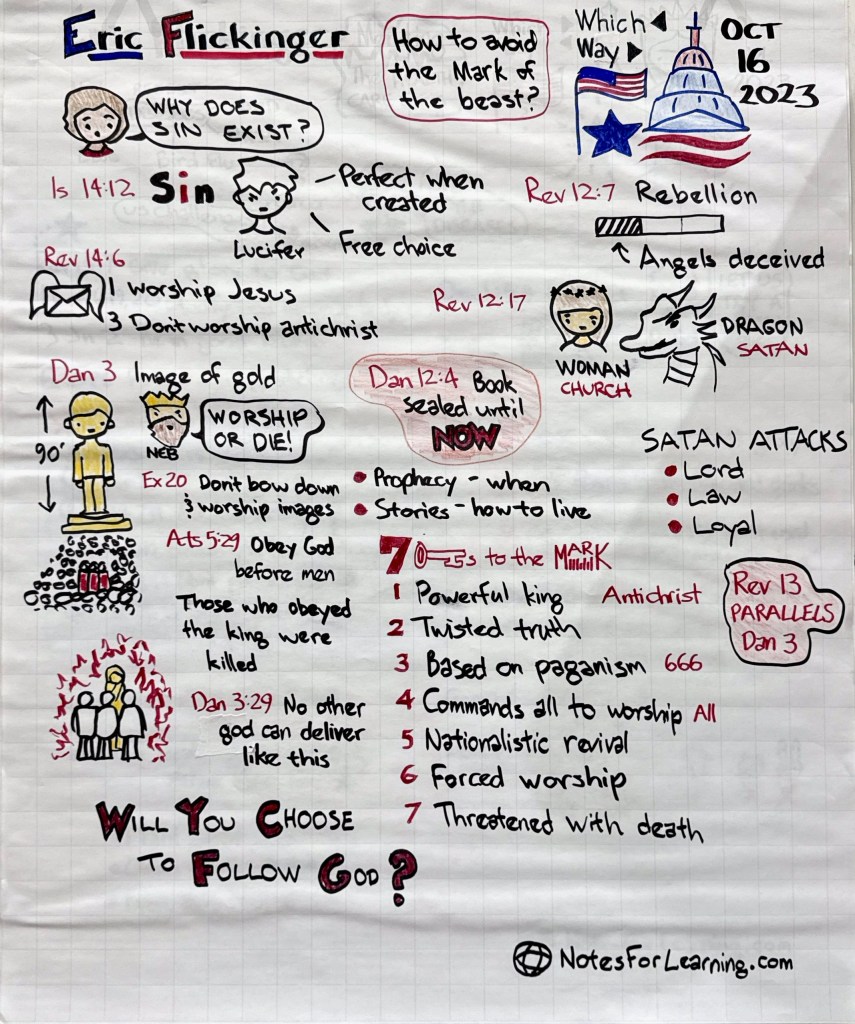 Eric Flickinger
How to avoid
the Mark of
the beast?
Which
Way
OCT
16
2023
WHY DOES
SIN EXIST?
Is 14:12 Sin
Lucifer
- Perfect when
created
Free choice
Rev 12:7 Rebellion
Angels deceived
Rev 14:6
1 Worship Jesus
3 Don't worship antichrist
Rev 12:17
WOMAN
CHURCH
DRAGON
SATAN
Dan 3 Image of gold
90'
NEB
WORSHIP
OR DIE!
Dan 12:4 Book
sealed until
NOW
SATAN ATTACKS
• Lord
• Law
• Loyal
Ex 20 Don't bow down
& worship images
Acts 5:29 Obey God
before men
Those who obeyed
the king were
killed
Dan 3:29 No other
god can deliver
like this
• Prophecy - when
• Stories - how to live
7 s to the MARK
1 Powerful king Antichrist
2 Twisted truth
3 Based on paganism 666
4 Commands all to worship All
5 Nationalistic revival
6 Forced worship
7 Threatened with death
Rev 13
PARALLELS
Dan 3
WILL YOU CHOOSE
TO FOLLOW GOD?
NotesForLearning.com